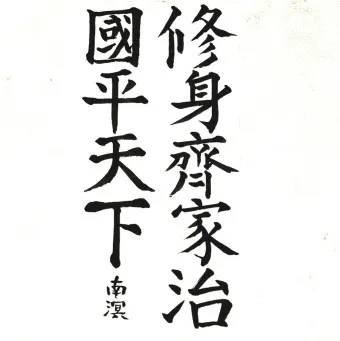 修身齊家治
國平天下
南溟